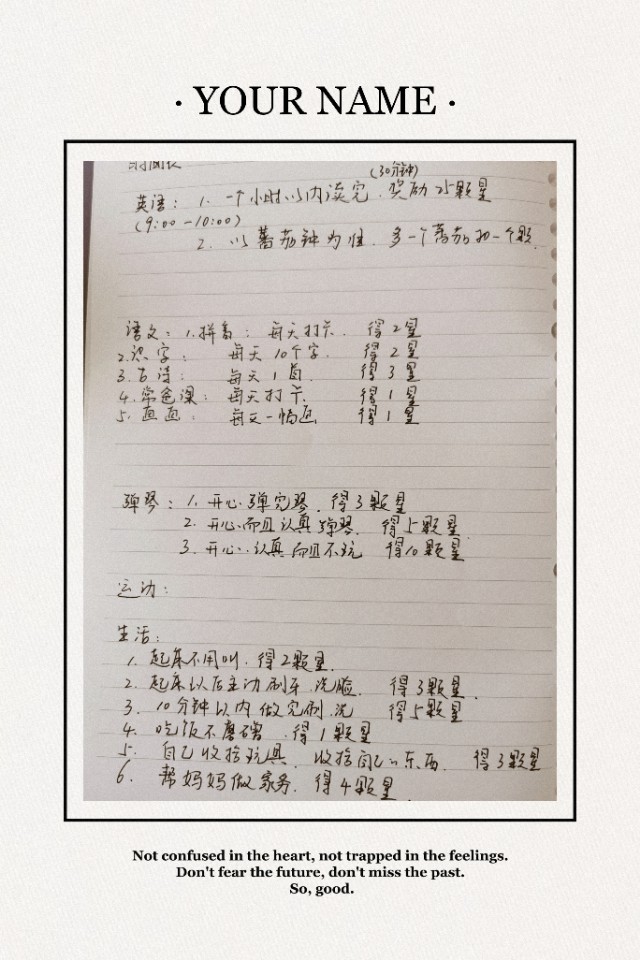 · YOUR NAME ·
时间表
(30分钟)
英语: 1. 一个小时以内读完. 奖励25颗星
(9:00-10:00)
2. 以番茄钟为准. 多一个番茄扣一个颗.
语文: 1.拼音: 每天打卡. 得2星
2.识字: 每天10个字. 得2星
3.古诗: 每天1首. 得3星
4.常色课: 每天打卡. 得1星
5.画画: 每天一幅画 得1星
弹琴: 1. 开心弹完琴. 得3颗星
2. 开心而且认真弹琴. 得5颗星
3. 开心.认真而且不玩 得10颗星
运动:
生活:
1. 起床不用叫. 得2颗星.
2. 起床以后主动刷牙.洗脸. 得3颗星.
3. 10分钟以内做完刷.洗 得5颗星
4. 吃饭不磨磳 .得1颗星
5. 自己收拾玩具. 收拾自己的东西. 得3颗星
6. 帮妈妈做家务. 得4颗星
Not confused in the heart, not trapped in the feelings.
Don't fear the future, don't miss the past.
So, good.